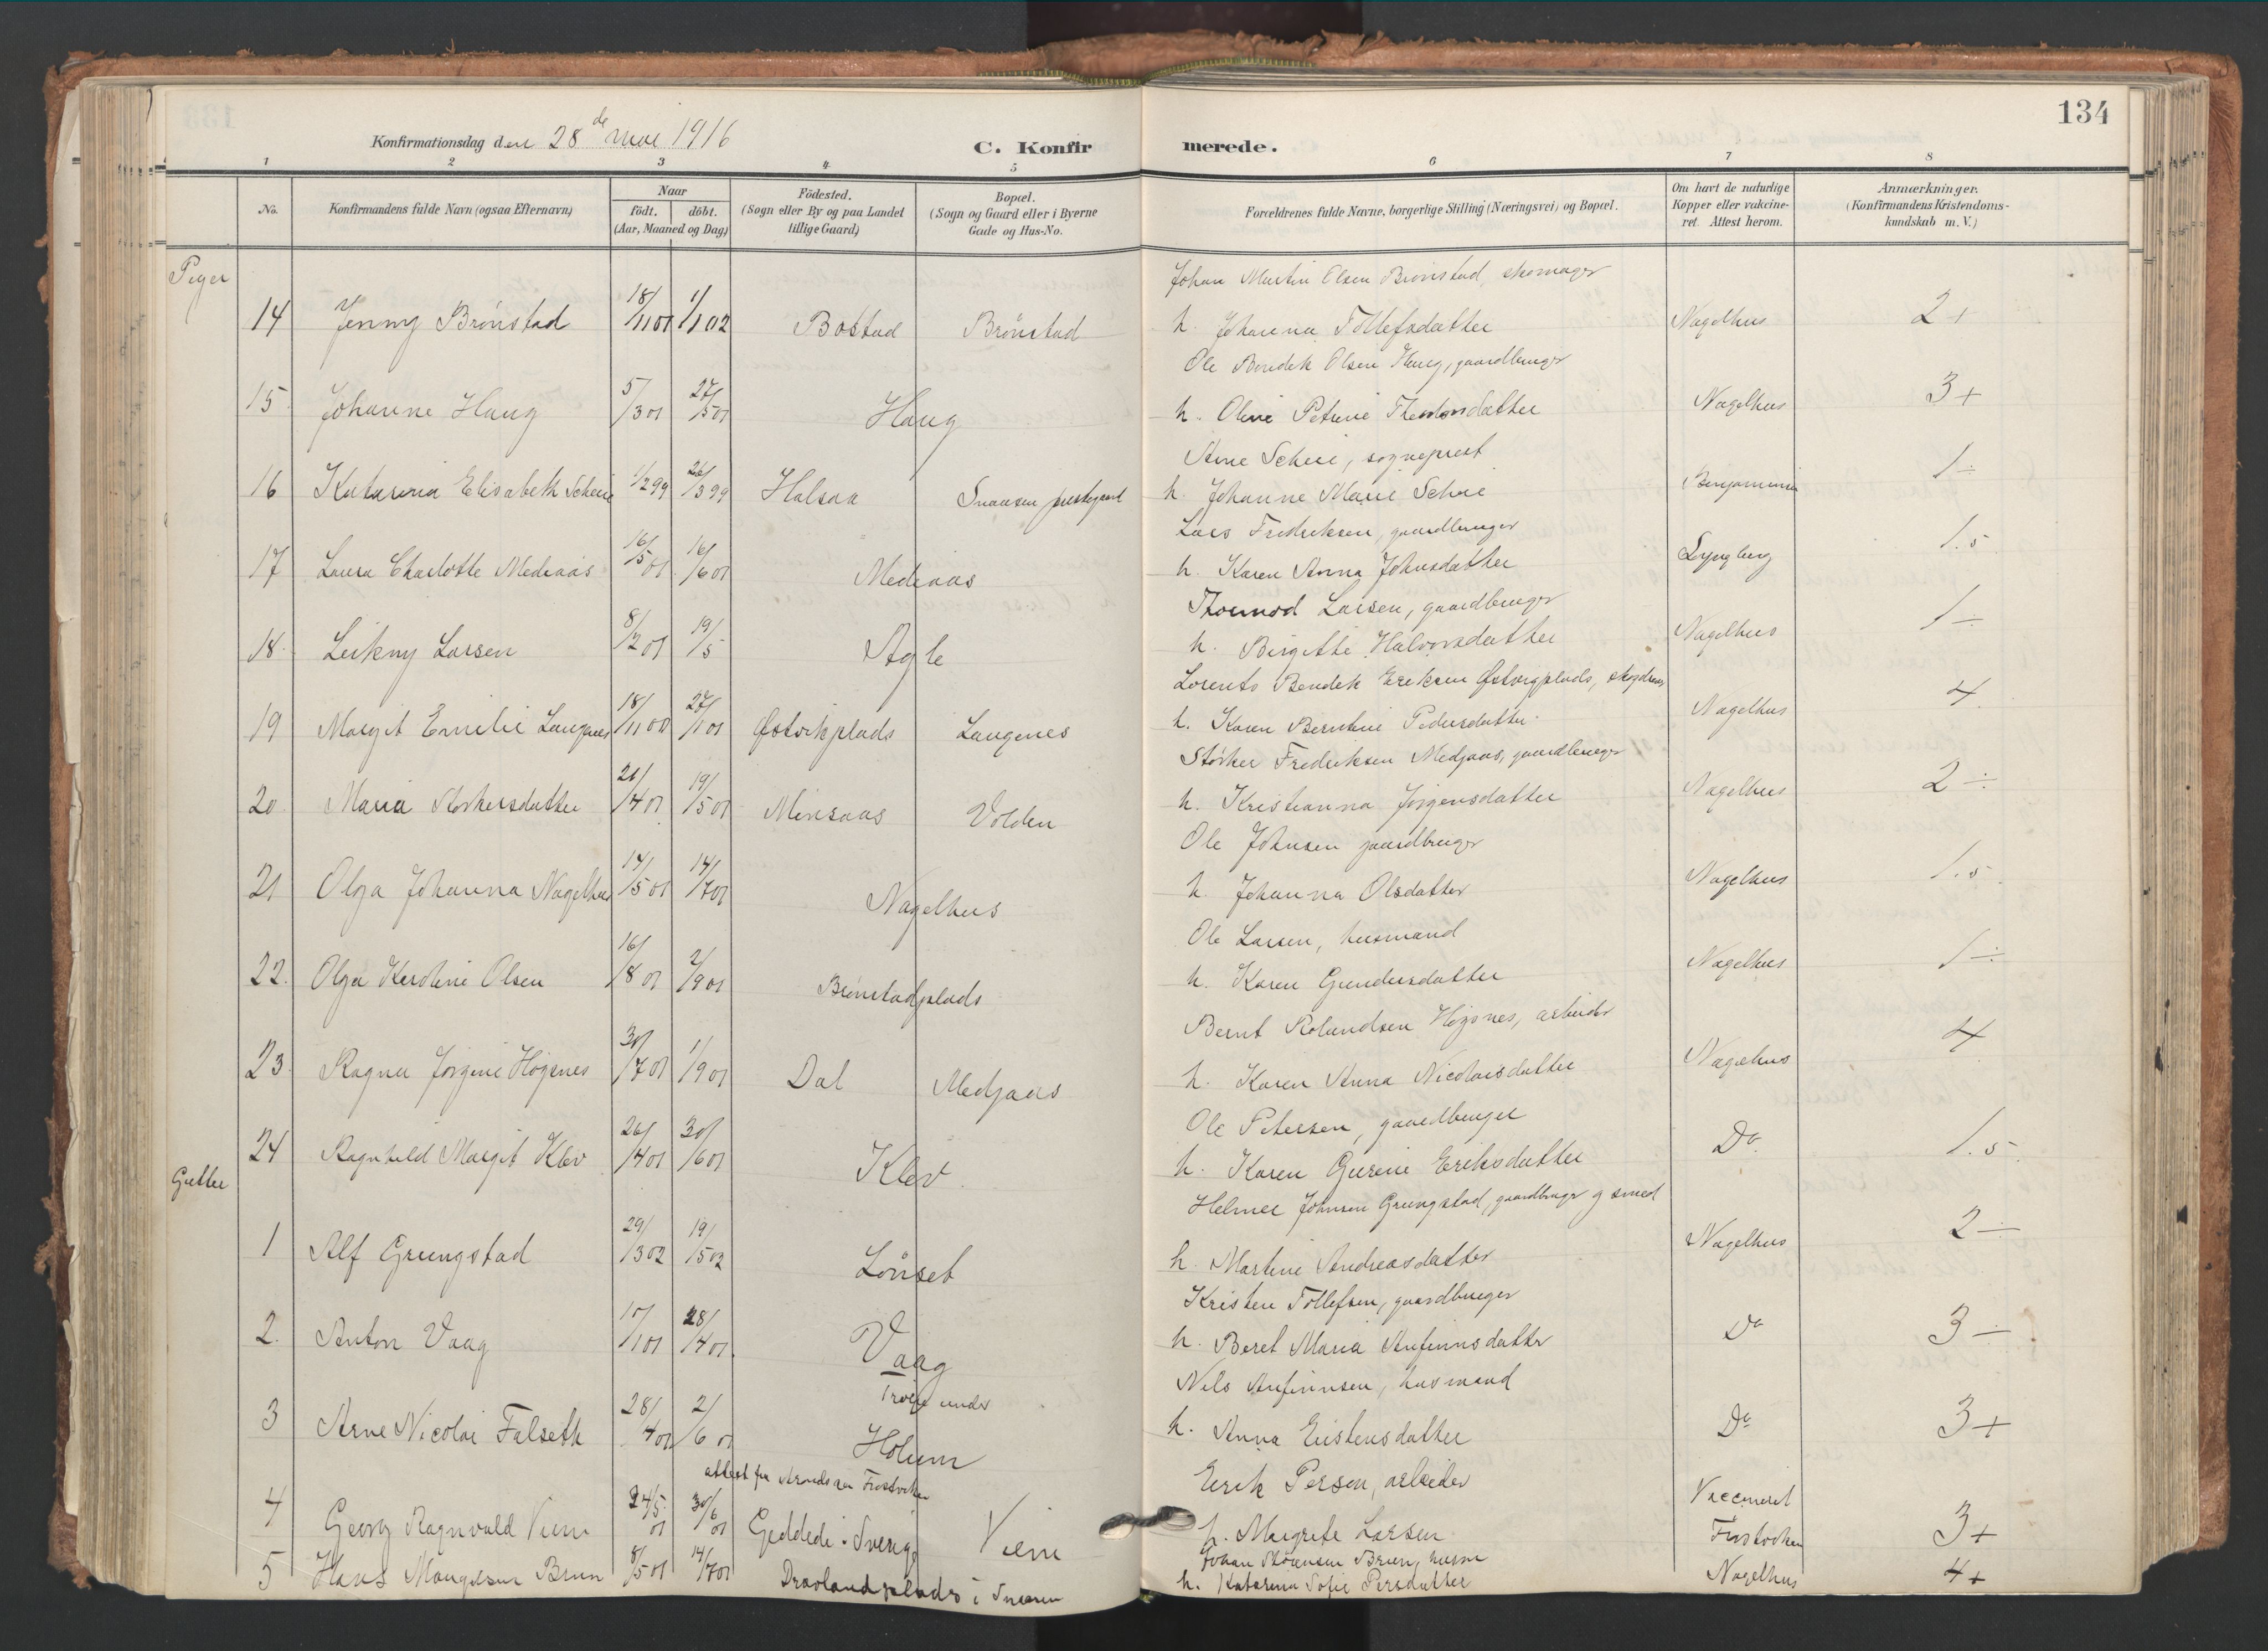 134
Konfirmationsdag den 28de mai 1916
C. Konfirmerede.
1 2 3 4 5 6 7 8
No.
Konfirmandens fulde Navn (ogsaa Efternavn)
Naar
født. døbt.
(Aar, Maaned og Dag)
Födested.
(Sogn eller By og paa Landet
tillige Gaard)
Bopæl.
(Sogn og Gaard eller i Byerne
Gade og Hus-No.
Forældrenes fulde Navne, borgerlige Stilling (Næringsvei) og Bopæl.
Om havt de naturlige
Kopper eller vakcine-
ret. Attest herom.
Anmærkninger.
(Konfirmandens Kristendoms-
kundskab m. V.)
Piger
Johan Martin Olsen Brönstad, skomager
14 Jenny Brönstad 18/11 01 1/1 02 Bostad Brönstad h. Johanna Tollefsdatter Nagelhus 2+
Ole Bendik Olsen Haug, gaardbruger
15 Johanne Haug 5/3 01 27/5 01 Haug h. Oline Petrine Theodorsdatter Nagelhus 3+
Arne Scheie, sogneprest
16 Katarina Elisabeth Scheie 1/2 99 26/3 99 Halsaa Snaasen prestegaard h. Johanne Marie Scheie Benjaminsen 1÷
Lars Fredriksen, gaardbruger
17 Laura Charlotte Mediaas 16/5 01 16/6 01 Mediaas h. Karen Anna Johnsdatter Lyngberg 1.5
Thormod Larsen, gaardbruger
18. Leikny Larsen 8/2 01 19/5 Agle h. Birgitte Halvorsdatter Nagelhus 1÷
Lorents Bendik Eriksen Østvigplads,
19 Margit Emilie Langnes 18/11 00 27/1 01 Østvikplads Langenes h. Karen Berntine Pedersdatter Nagelhus 4
Störker Fredriksen Medjaas, gaardbruger
20 Maria Störkersdatter 21/4 01 19/5 01 Minsaas Volden h. Kristianna Jörgensdatter Nagelhus 2÷
Ole Johnsen gaardbruger
21 Olga Johanna Nagelhus 14/5 01 14/7 01 Nagelhus h. Johanna Olsdatter Nagelhus 1.5
Ole Larsen, husmand
22. Olga Karoline Olsen 16/8 01 2/9 01 Brönstadplads h. Karen Gundersdatter Nagelhus 1÷
Bernt Rolandsen Högsnes, arbeider
23 Ragna Jörgine Högsnes 30/7 01 1/9 01 Dal Medjaas h. Karen Anna Nicolaisdatter Nagelhus 4
Ole Petersen, gaardbruger
24 Ragnhild Margit Klev 26/4 01 30/6 01 Klev h. Karen Gurine Eriksdatter Do 1.5
Gutter
Helmer Johnsen Grungstad, gaardbruger og smed
1 Alf Grungstad 29/3 02 19/5 02 Lönset h. Martine Andreasdatter Nagelhus 2÷
Kristen Tollefsen, gaardbruger
2. Anton Vaag 10/1 01 28/4 01 Vaag h. Beret Maria Anfinnsdatter Do 3÷
Nils Anfinnsen, husmand
3 Arne Nicolai Falseth 28/4 01 2/6 01 under Holum h. Anna Eistensdatter Do 3+
attest fra Frostviken
Erik Persen, arbeider
4 Georg Ragnvald Viem 24/5 01 30/6 01 Geddede i Sverige Viem h. Margrete Larsen Vaccineret Frostviken 3+
Johan Mörensen Bruun, husm
5 Hans Mangelsen Brun 8/5 01 14/7 01 Dravlandsplads i Snaasen h. Katarina Sofie Persdatter Nagelhus 4+